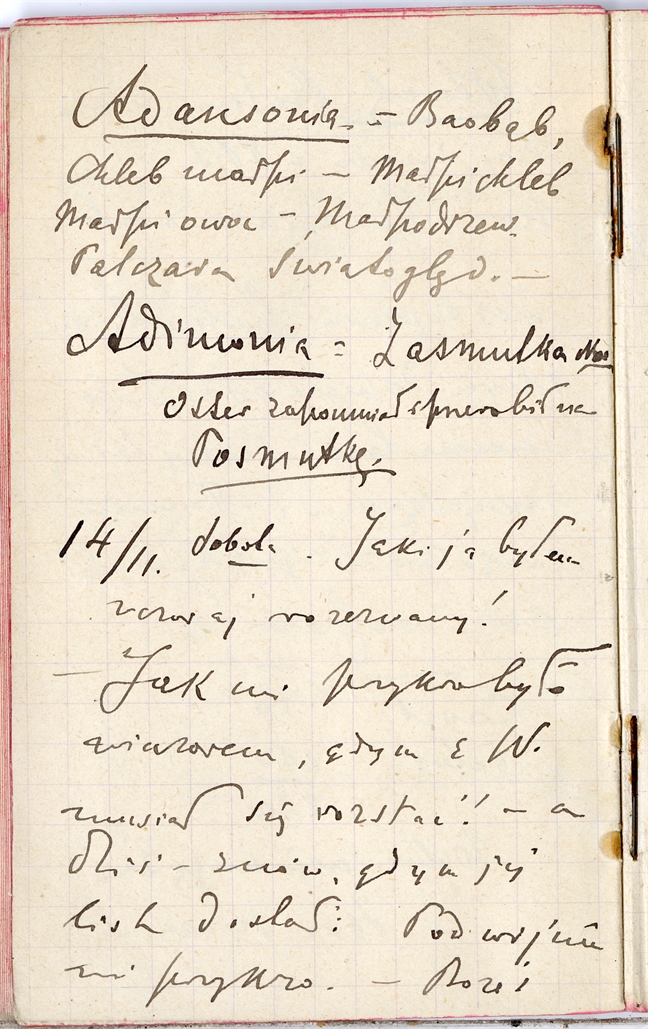 Adansonia = Baobab,
Chleb małpi – Małpichleb
Małpi owoc – Małpodrzew.
Palczara Światogląd. –
Adimonia = Zasmutka
Oster zapomniał i przerobił na
Posmutkę.
14/11. sobota. Jaki ja byłem
wczoraj rozerwany!
– Jak mi przykro było
wieczorem, gdym z W.
musiał się rozstać! – a
dziś – znów, gdym jej
list dostał: Podwójnie
mi przykro. – Boże!